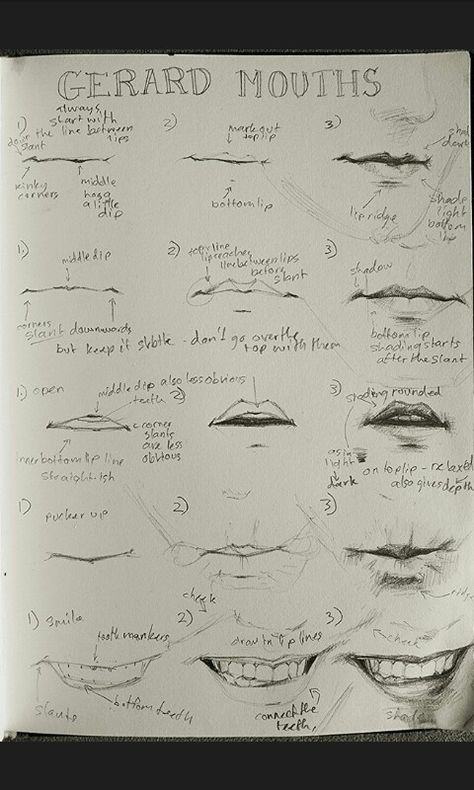 GERARD MOUTHS
always
start with
the line between
lips
1)
down
slant
kinky
corners
middle
has a
a little
dip
2)
mark out
top lip
bottom lip
3)
lip ridge
shade
light
bottom
1.)
middle dip
corners
slant downwards
but keep it subtle - don't go over the
top with them
2)
top line
lip reaches
line between lips
before
slant
3)
shadow
bottom lip
shading starts
after the slant
1.) open
middle dip also less obvious
teeth
corner
slants
are less
obvious
inner bottom lip line
straight-ish
2)
3)
shading rounded
as in
light
dark
on top lip - relaxed
also gives depth
1)
pucker up
2)
3)
ridge
1) smile
tooth markers
slants
bottom teeth
cheek
2)
draw in lip lines
connect the
teeth,
3)
cheek
shade